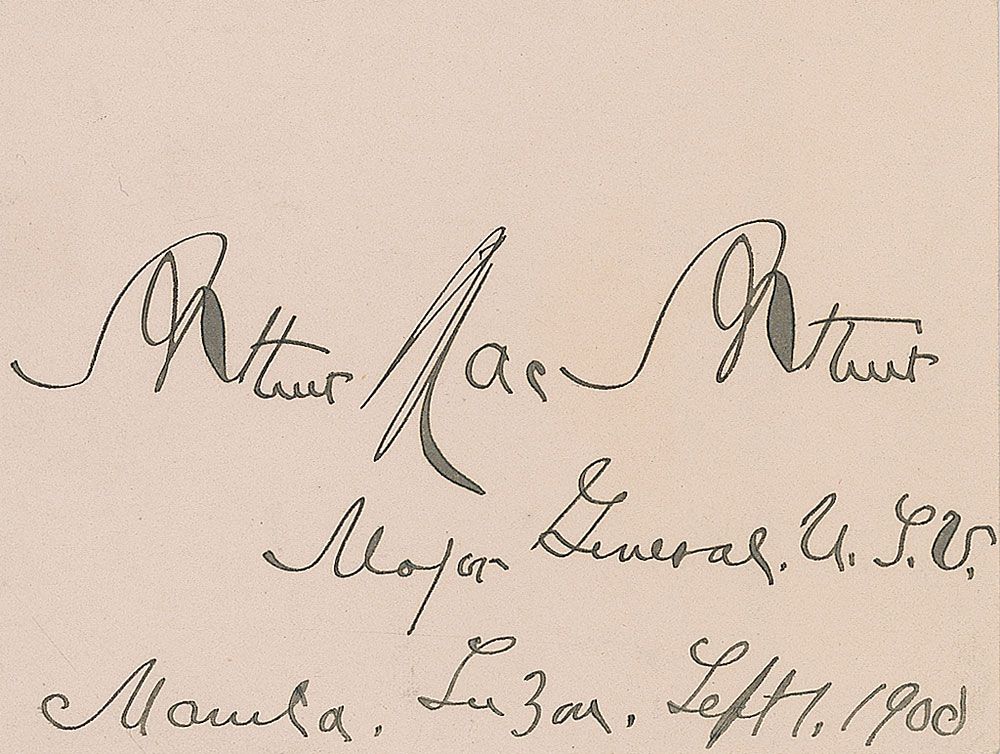 Arthur Mac Arthur
Major General. U. S. V.
Manila. Luzon. Sept 1. 1900